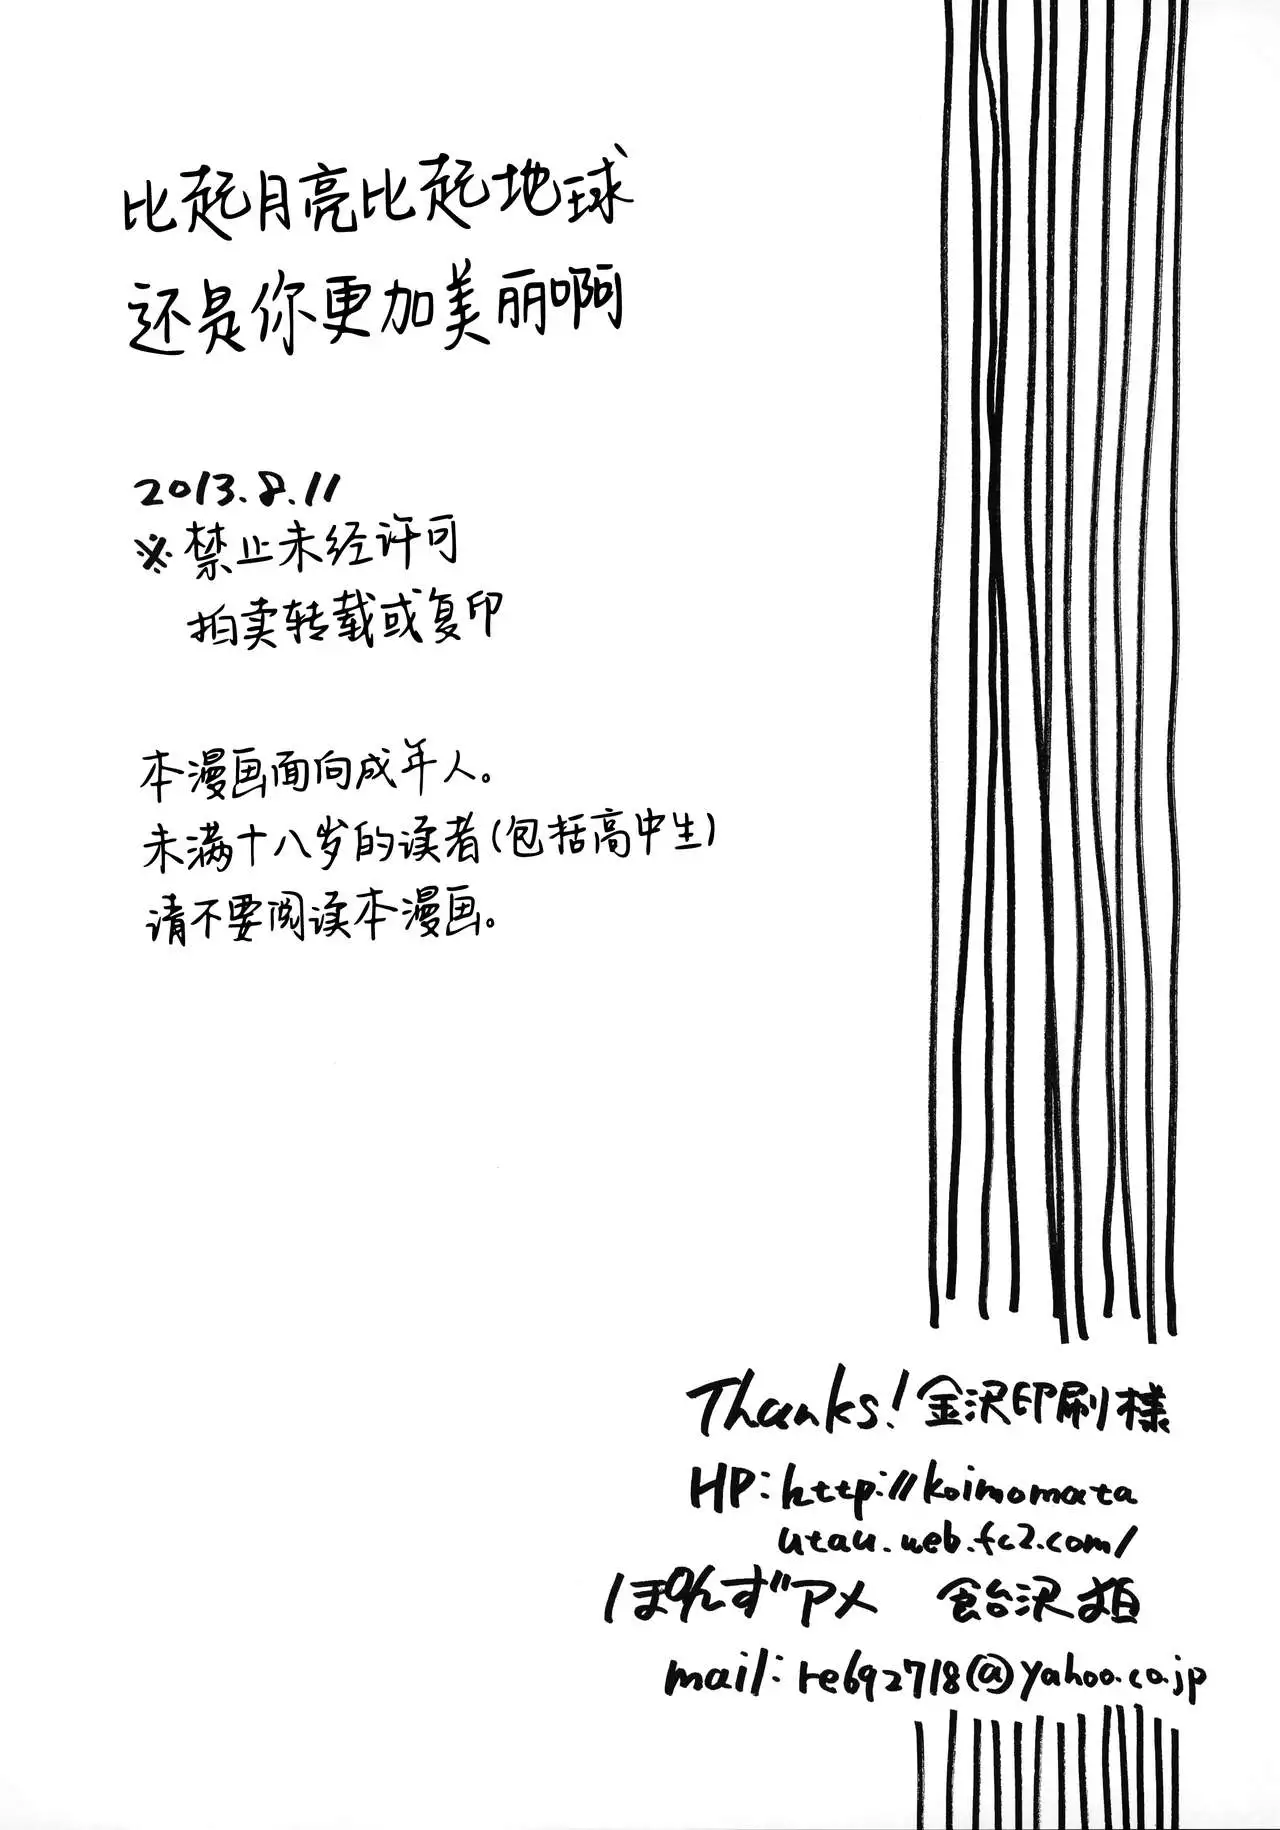 比起月亮比起地球
还是你更加美丽啊
2013.8.11
※禁止未经许可
拍卖转载或复印
本漫画面向成年人。
未满十八岁的读者(包括高中生)
请不要阅读本漫画。
Thanks! 金沢印刷様
HP:http://koimomata
utau.web.fc2.com/
ぽんずアメ 飴沢
mail:re692718@yahoo.co.jp